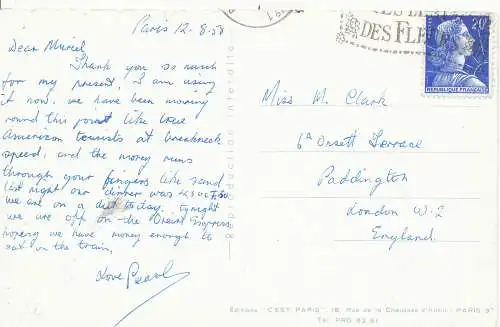 Paris 12.8.58
Dear Muriel
Thank you so much
for my present, I am using
it now. we have been moving
round this joint like true
American tourists at breakneck
speed, and the money runs
through your fingers like sand
last night our dinner was
we are on a diet today. tonight
we are off on the Orient Express
hoping we have money enough to
eat on the train.
Love Pearl
Reproduction interdite
DES FLEURS
20F
REPUBLIQUE FRANÇAISE
Miss M. Clark
6A Orsett Terrace
Paddington
London W.2
England.
Editions "C'EST PARIS", 18, Rue de la Chaussée d'Antin - PARIS 9e
Tél. PRO 82 61